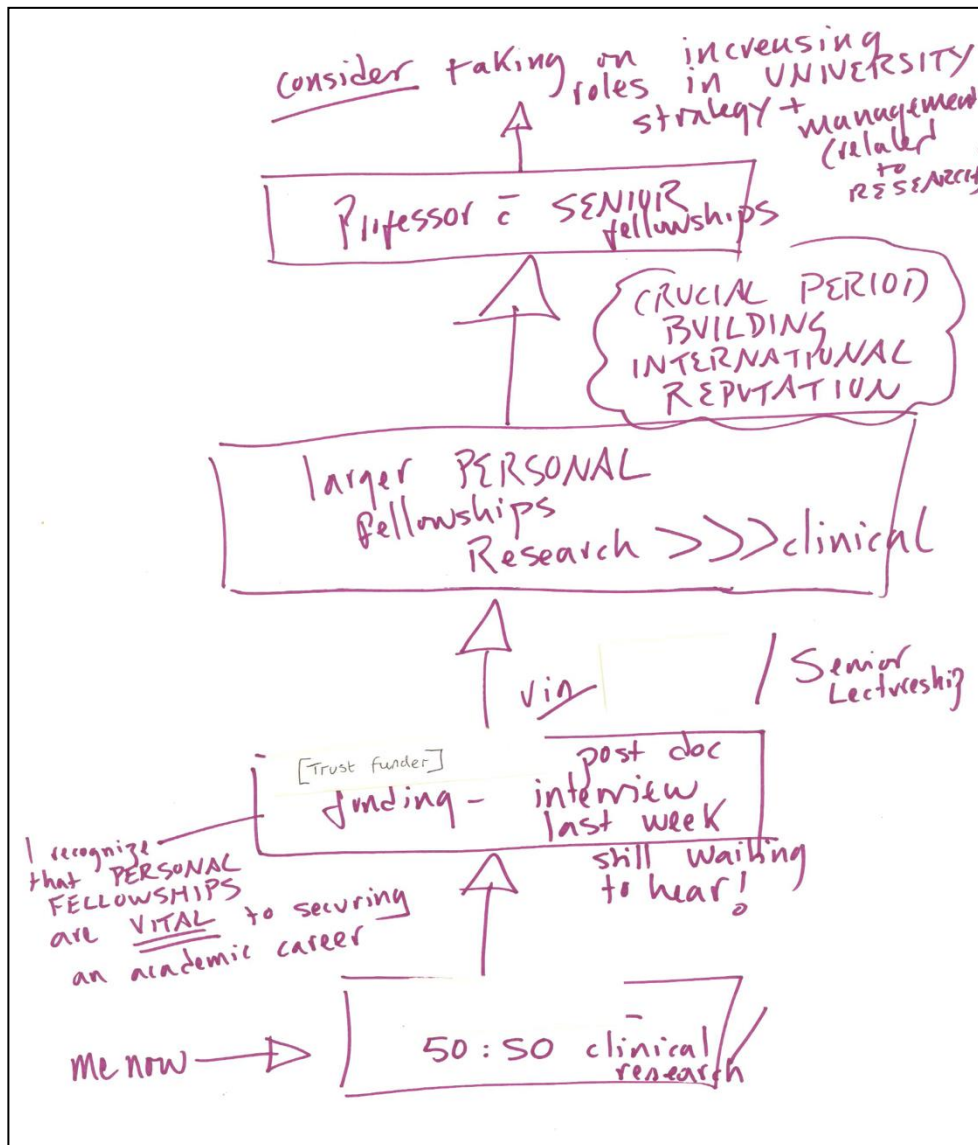 consider taking on increasing
roles in UNIVERSITY
strategy + management
(related
to
RESEARCH)
Professor c̄ SENIOR
fellowships
CRUCIAL PERIOD
BUILDING
INTERNATIONAL
REPUTATION
larger PERSONAL
fellowships
Research >>> clinical
via
/ Senior
Lectureship
[Trust funder]
post doc
funding - interview
last week
still waiting
to hear!
I recognize
that PERSONAL
FELLOWSHIPS
are VITAL to securing
an academic career
me now
50:50 clinical /
research